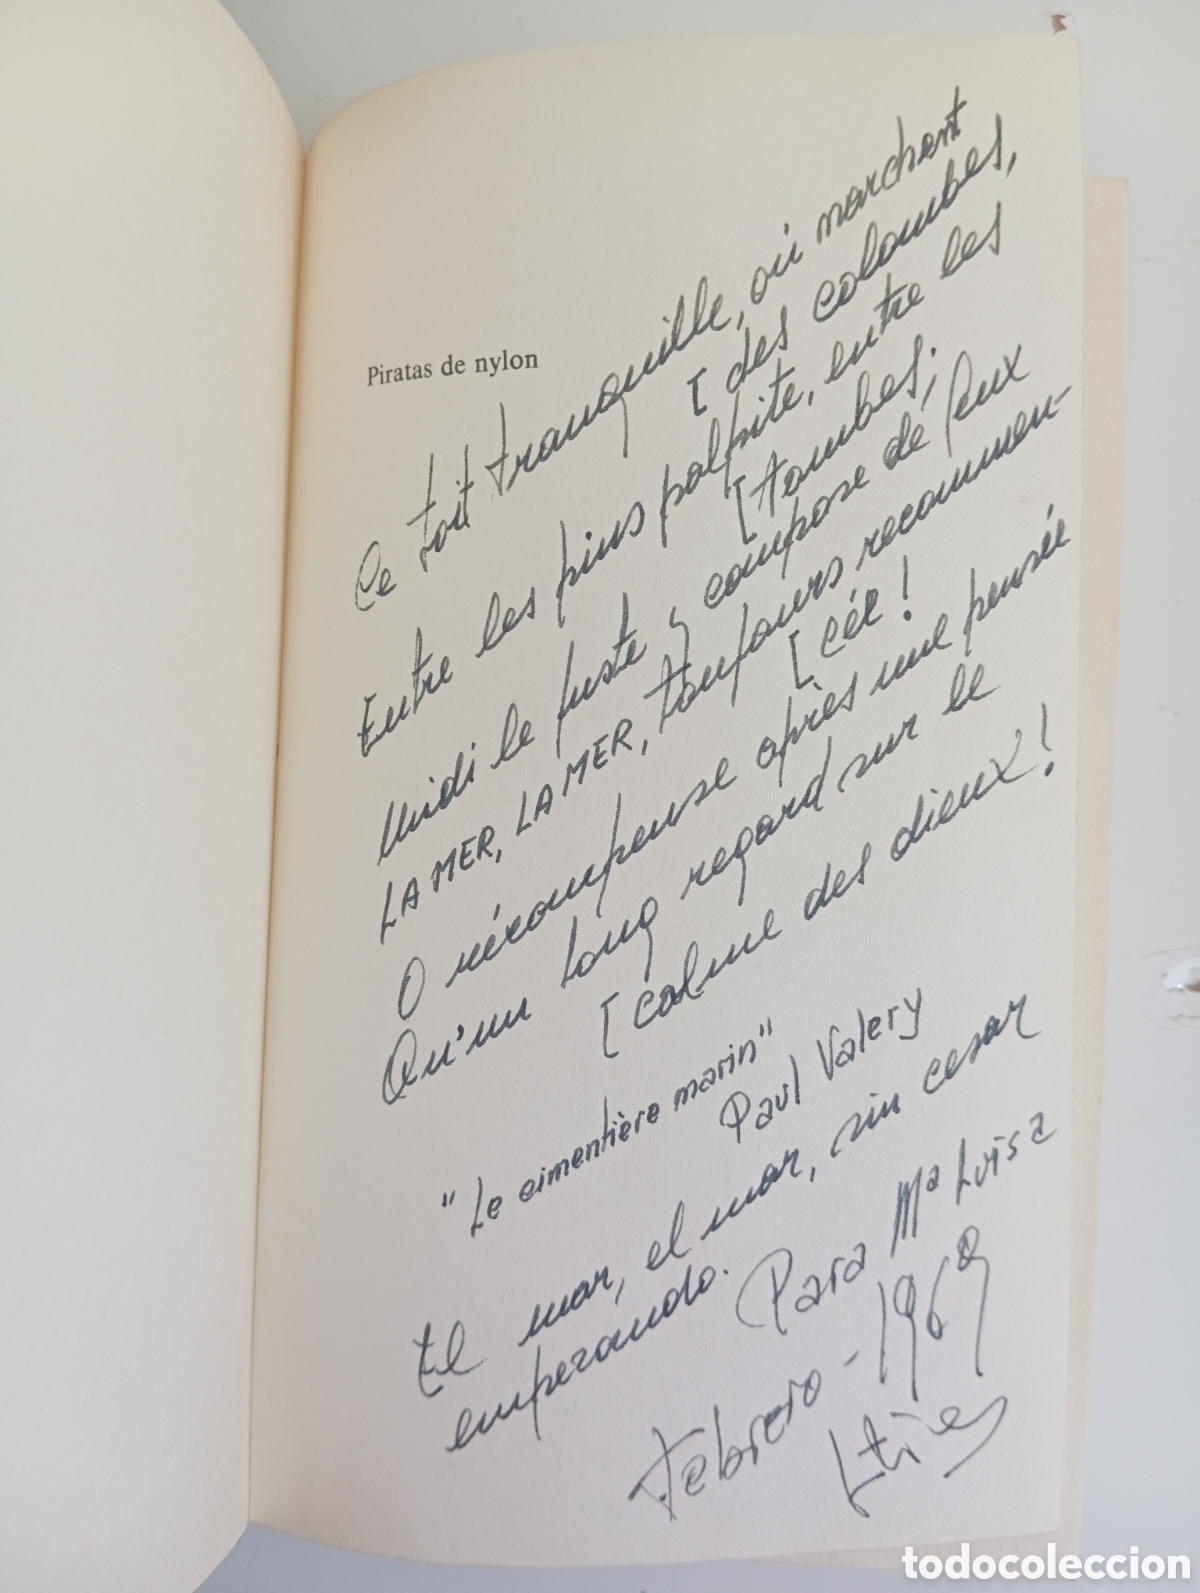 Piratas de nylon
Ce toit tranquille, où marchent
[des colombes,
Entre les pins palpite, entre les
[tombes;
Midi le juste y compose de feux
LA MER, LA MER, toujours recommen-
[cée!
O récompense après une pensée
Qu'un long regard sur le
[calme des dieux!
"Le cimentière marin"
Paul Valery
El mar, el mar, sin cesar
empezando.
Para Mª Luisa
Febrero-1969
todocoleccion